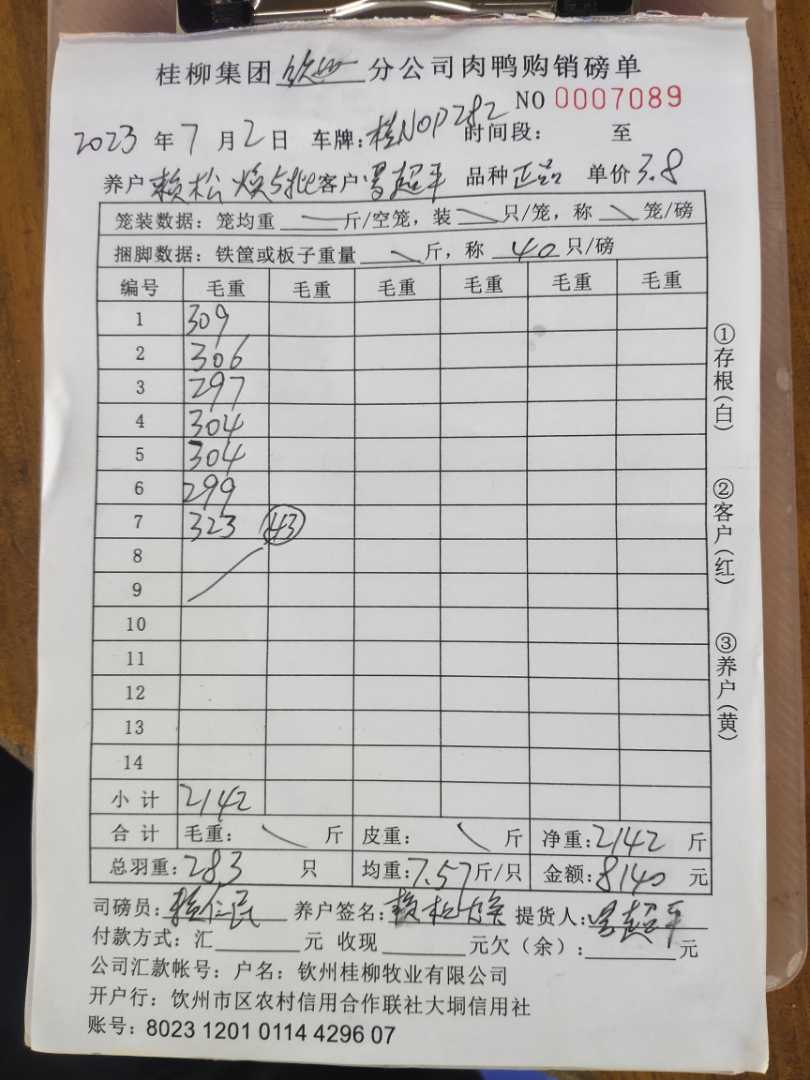 桂柳集团 钦州 分公司肉鸭购销磅单
NO 0007089
2023 年 7 月 2 日 车牌:桂N0P282 时间段: 至
养户 赖松焕5批 客户 超平 品种 单价 3.8
笼装数据:笼均重 斤/空笼,装 只/笼,称 笼/磅
捆脚数据:铁筐或板子重量 斤,称 40 只/磅
编号 毛重 毛重 毛重 毛重 毛重 毛重
1 309
2 306
3 297
4 304
5 304
6 299
7 323 43
8
9
10
11
12
13
14
小计 2142
合计 毛重: 斤 皮重: 斤 净重:2142 斤
总羽重:283 只 均重:7.57斤/只 金额:8140 元
司磅员:赖仁民 养户签名:赖松焕 提货人: 超平
付款方式:汇 元 收现 元欠(余): 元
公司汇款帐号:户名:钦州桂柳牧业有限公司
开户行:饮州市区农村信用合作联社大垌信用社
账号:8023 1201 0114 4296 07
①存根(白)
②客户(红)
③养户(黄)